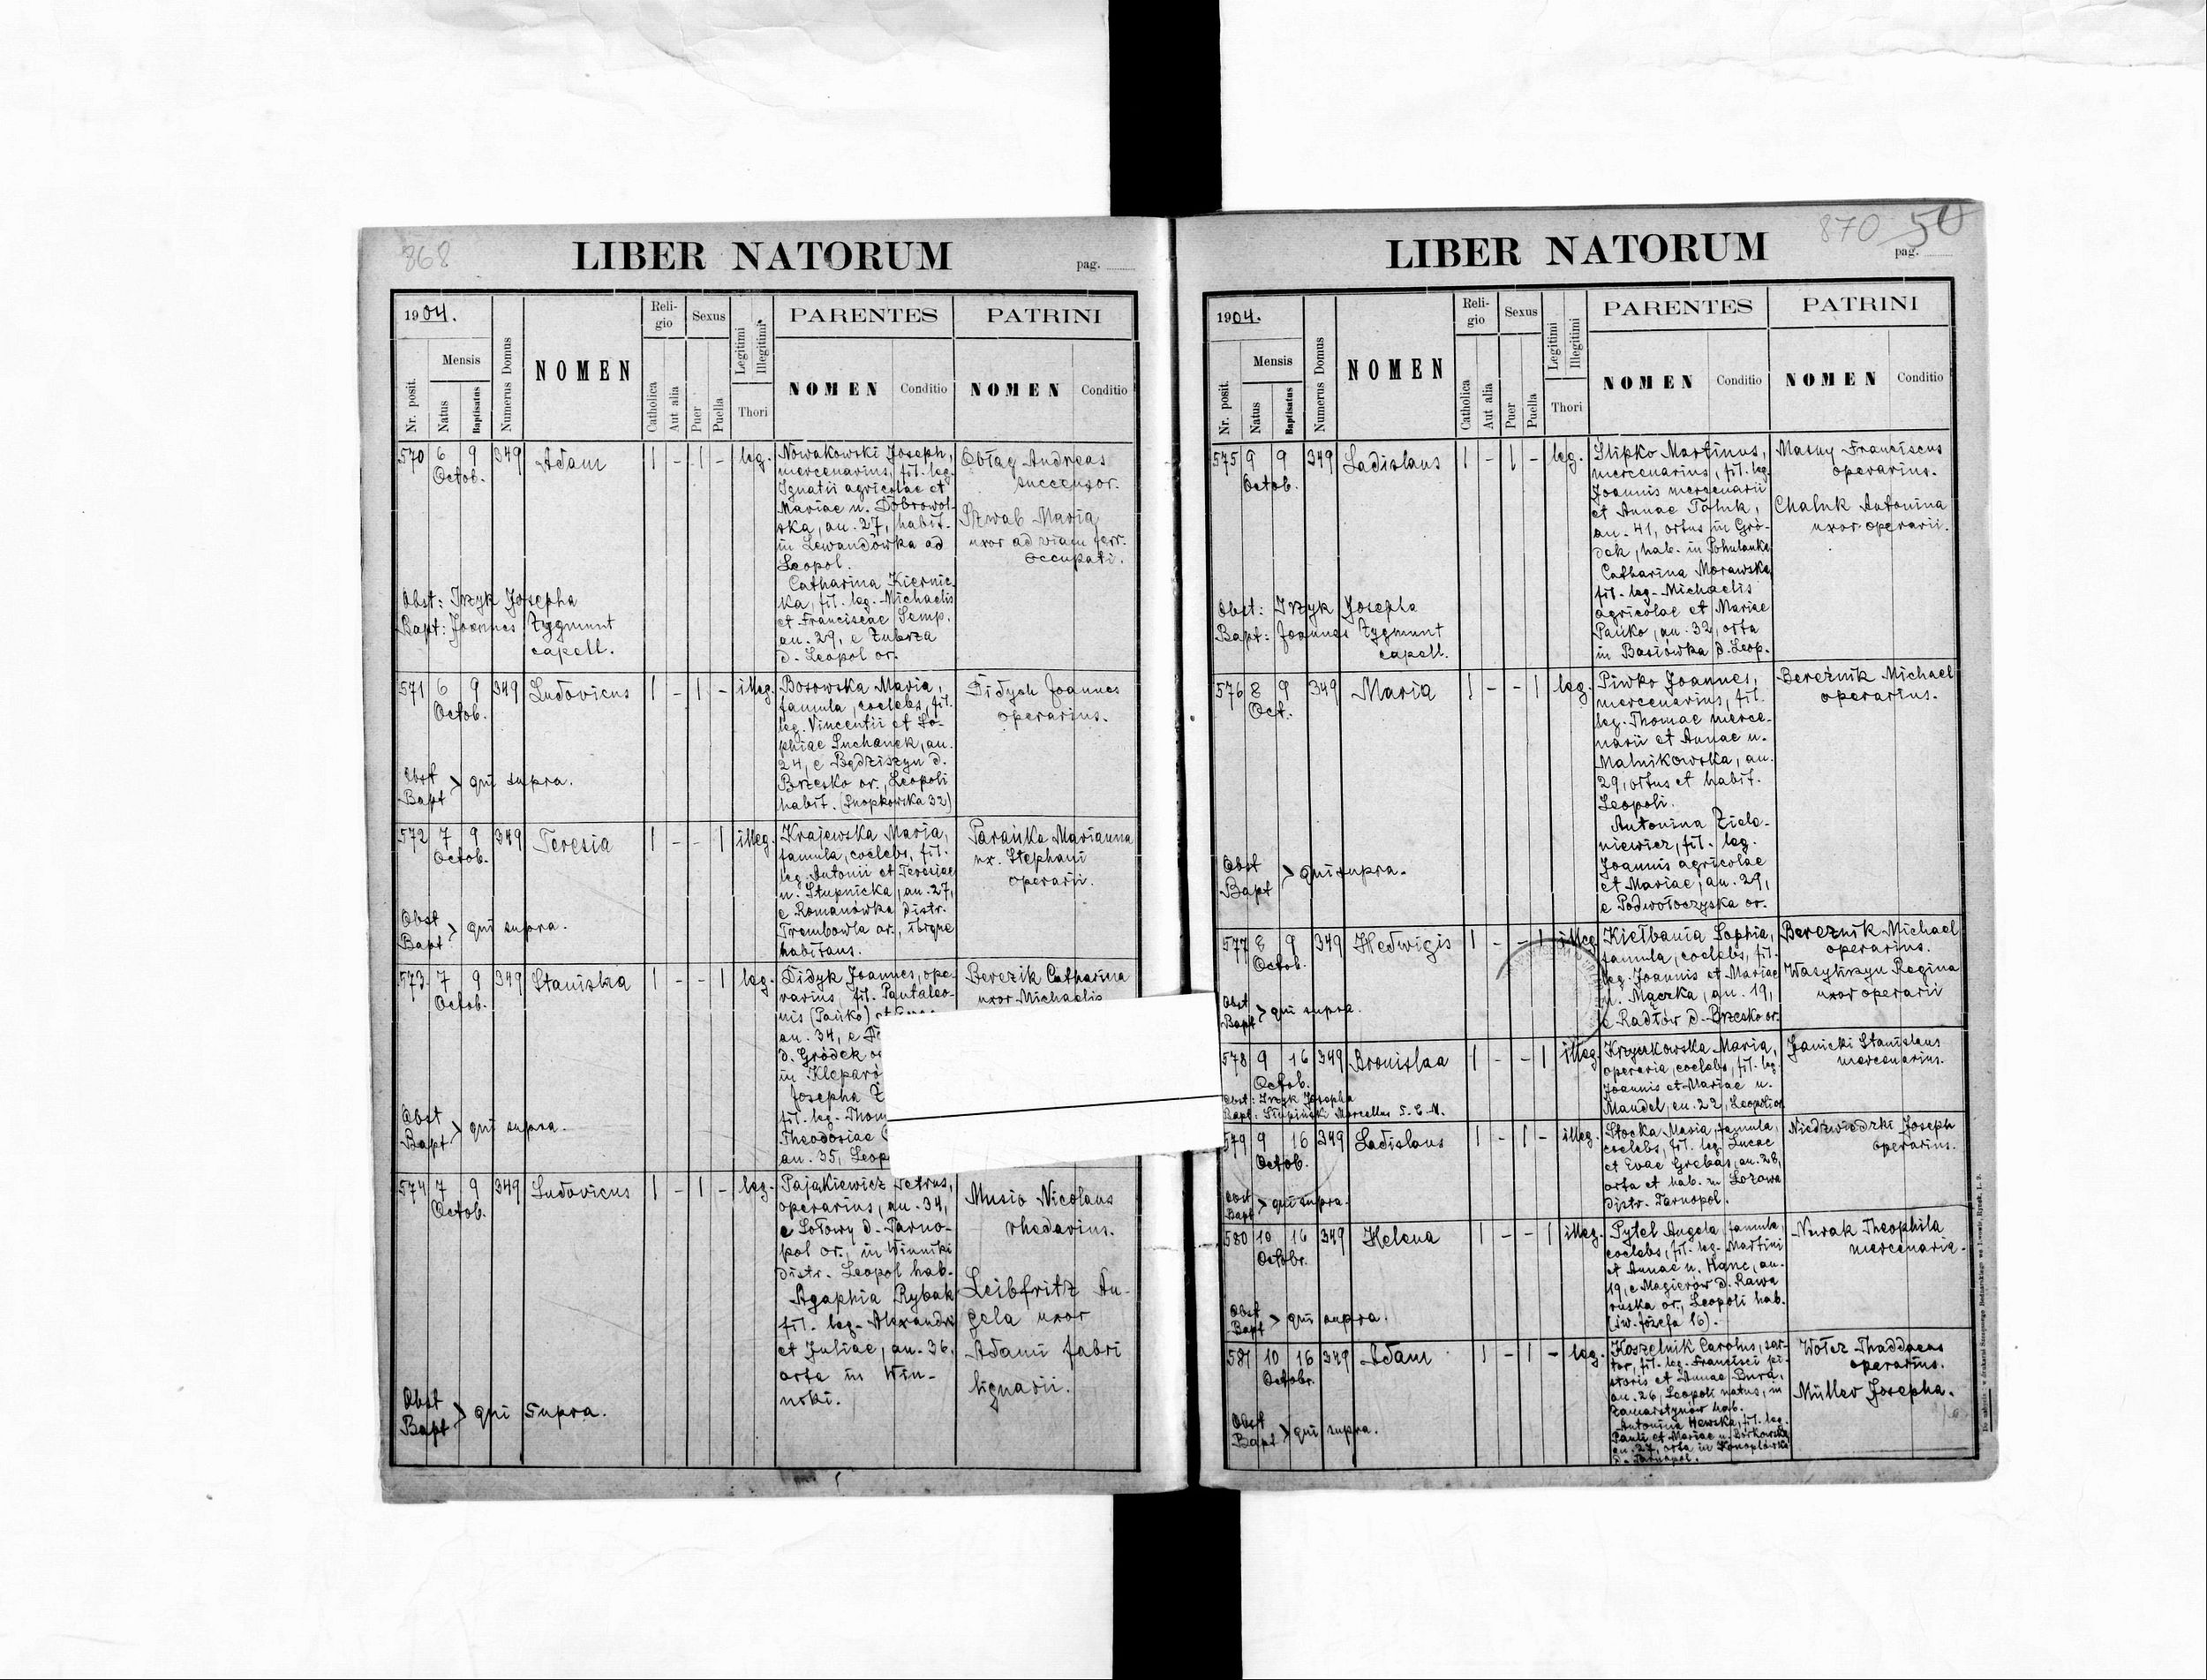 868
LIBER NATORUM
pag.
1904.
Nr. posit.
Mensis
Natus
Baptisatus
Numerus Domus
NOMEN
Religio
Catholica
Aut alia
Sexus
Puer
Puella
Legitimi
Illegitimi
Thori
PARENTES
NOMEN
Conditio
PATRINI
NOMEN
Conditio
570 6 9 349 Adam 1 - 1 - leg.
Octob.
Nowakowski Joseph,
mercenarius, fil. leg.
Ignatii agricolae et
Mariae n. Dobrowol-
ska, an. 27, habit.
in Lewandówka ad
Leopol.
Catharina Kiernic-
ka, fil. leg. Michaelis
et Franciscae Semp.
an. 29, e Zubrza
d. Leopol or.
Andreas
successor.
Szwab Maria
uxor ad viam ferr.
occupati.
Obst: Irzyk Josepha
Bapt: Joannes Zygmunt
capell.
571 6 9 349 Ludovicus 1 - 1 - illeg.
Octob.
Bosowska Maria,
famula, coelebs, fil.
leg. Vincentii et So-
phiae Suchanek, an.
24, e Będziszyn d.
Brzesko or., Leopoli
habit. (Snopkowska 32)
Didych Joannes
operarius.
Obst
Bapt > qui supra.
572 7 9 349 Teresia 1 - - 1 illeg.
Octob.
Krajewska Maria,
famula, coelebs, fil.
leg. Antonii et Teresiae
n. Stupnicka, an. 27,
e Romanówka distr.
Trembowla or., ibique
habitans.
Parańka Marianna
ux. Stephani
operarii.
Obst
Bapt > qui supra.
573 7 9 349 Stanisłva 1 - - 1 leg.
Octob.
Didyk Joannes, ope-
rarius, fil. Pantaleo-
nis (Pańko) et
an. 34, e
d. Gródek
in Klepar
Josepha
fil. leg. Thom
Theodosiae
an. 35, Leop
Berezik Catharina
uxor Michaelis
Obst
Bapt > qui supra.
574 7 9 349 Ludovicus 1 - 1 - leg.
Octob.
Pajakiewicz Petrus,
operarius, an. 34,
e Sołowy d. Tarno-
pol or., in Winniki
distr. Leopol hab.
Agaphia Rybak
fil. leg. Alexandri
et Juliae, an. 36,
orta in Win-
niki.
Musio Nicolaus
rhedarius.
Leibfritz An-
gela uxor
Adami fabri
lignarii.
Obst
Bapt > qui supra.
870 50
LIBER NATORUM
pag.
1904.
Nr. posit.
Mensis
Natus
Baptisatus
Numerus Domus
NOMEN
Religio
Catholica
Aut alia
Sexus
Puer
Puella
Legitimi
Illegitimi
Thori
PARENTES
NOMEN
Conditio
PATRINI
NOMEN
Conditio
575 9 9 349 Ladislaus 1 - 1 - leg.
Octob.
Slipko Martinus,
mercenarius, fil. leg.
Joannis mercenarii
et Annae
an. 41, ortus in Gró-
dek, hab. in Pohulanka
Catharina Morawska,
fil. leg. Michaelis
agricolae et Mariae
Pańko, an. 32, orta
in Basiówka d. Leop.
Masny Franciscus
operarius.
Chaluk Antonina
uxor operarii.
Obst: Irzyk Josepha
Bapt: Joannes Zygmunt
capell.
576 8 9 349 Maria 1 - - 1 leg.
Oct.
Piwko Joannes,
mercenarius, fil.
leg. Thomae merce-
narii et Annae n.
Malnikowska, an.
29, ortus et habit.
Leopoli.
Antonina Ziela-
niewicz, fil. leg.
Joannis agricolae
et Mariae, an. 29,
e Podwołoczyska or.
Bereźnik Michael
operarius.
Obst
Bapt > qui supra.
577 8 9 349 Hedwigis 1 - - 1 illeg.
Octob.
Kiełbania Sophia,
famula, coelebs, fil.
leg. Joannis et Mariae
n. Mączka, an. 19,
e Radłów d. Brzesko or.
Bereźnik Michael
operarius.
Wasyliszyn Regina
uxor operarii
Obst
Bapt > qui supra.
578 9 16 349 Bronislaa 1 - - 1 illeg.
Octob.
Krzyczkowska Maria,
operaria, coelebs, fil. leg.
Joannis et Mariae n.
Mandel, an. 22, Leopoli or.
Janicki Stanislaus
mercenarius.
Obst: Irzyk Josepha
Bapt: Marcellus S. E. M.
579 9 16 349 Ladislaus 1 - 1 - illeg.
Octob.
Stocka Maria, famula,
coelebs, fil. leg. Lucae
et Evae Grebas, an. 28,
orta et hab. in Łozowa
distr. Tarnopol.
Niedzwiedzki Joseph
operarius.
Obst
Bapt > qui supra.
580 10 16 349 Helena 1 - - 1 illeg.
Octobr.
Pytel Angela, famula,
coelebs, fil. leg. Martini
et Annae n. Hanc, an.
19, e Magierów d. Rawa
ruska or., Leopoli hab.
(św. Józefa 16).
Nowak Theophila
mercenaria.
Obst
Bapt > qui supra.
581 10 16 349 Adam 1 - 1 - leg.
Octobr.
Koszelnik Carolus, sar-
tor, fil. leg. Francisci pi-
storis et Annae Bura,
an. 26, Leopoli natus, in
Zamarstynów hab.
Antonina Hewska, fil. leg.
Pauli et Mariae n. Borkowska
an. 27, orta in Konopkówka
d. Tarnopol.
Wołcz Thaddaeus
operarius.
Müller Josepha.
Obst
Bapt > qui supra.